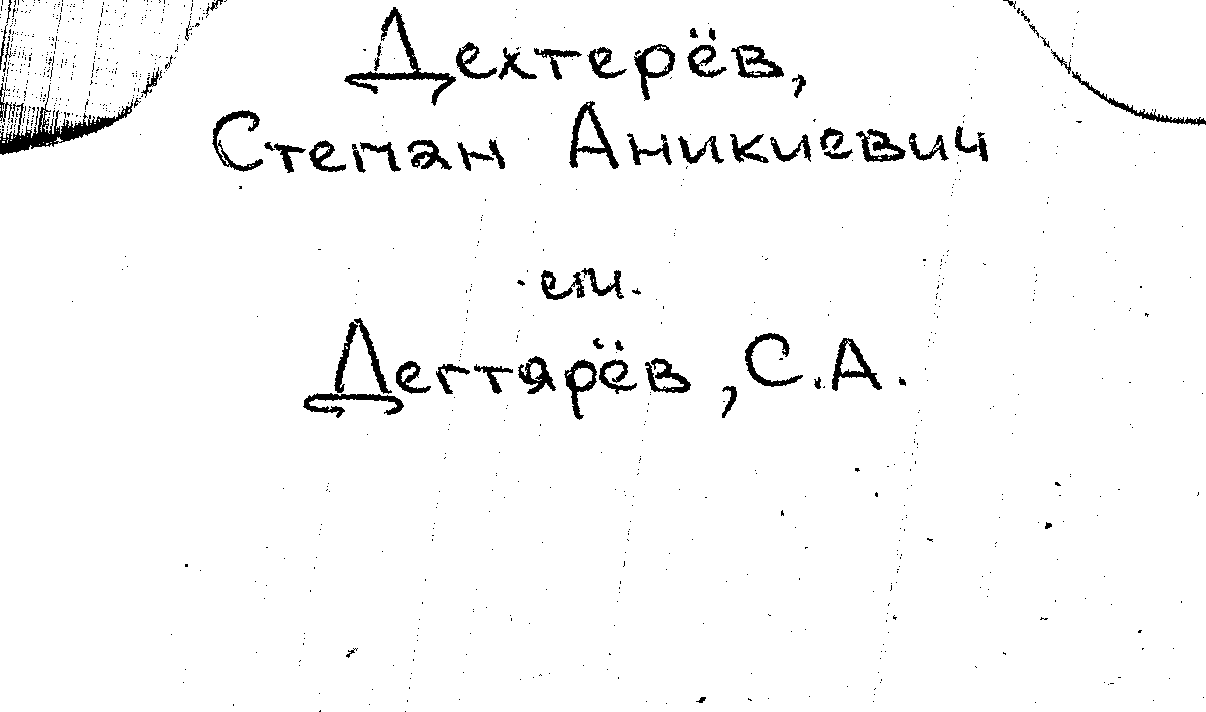 Дехтерёв,
Степан Аникиевич
см.
Дегтярёв, С.А.